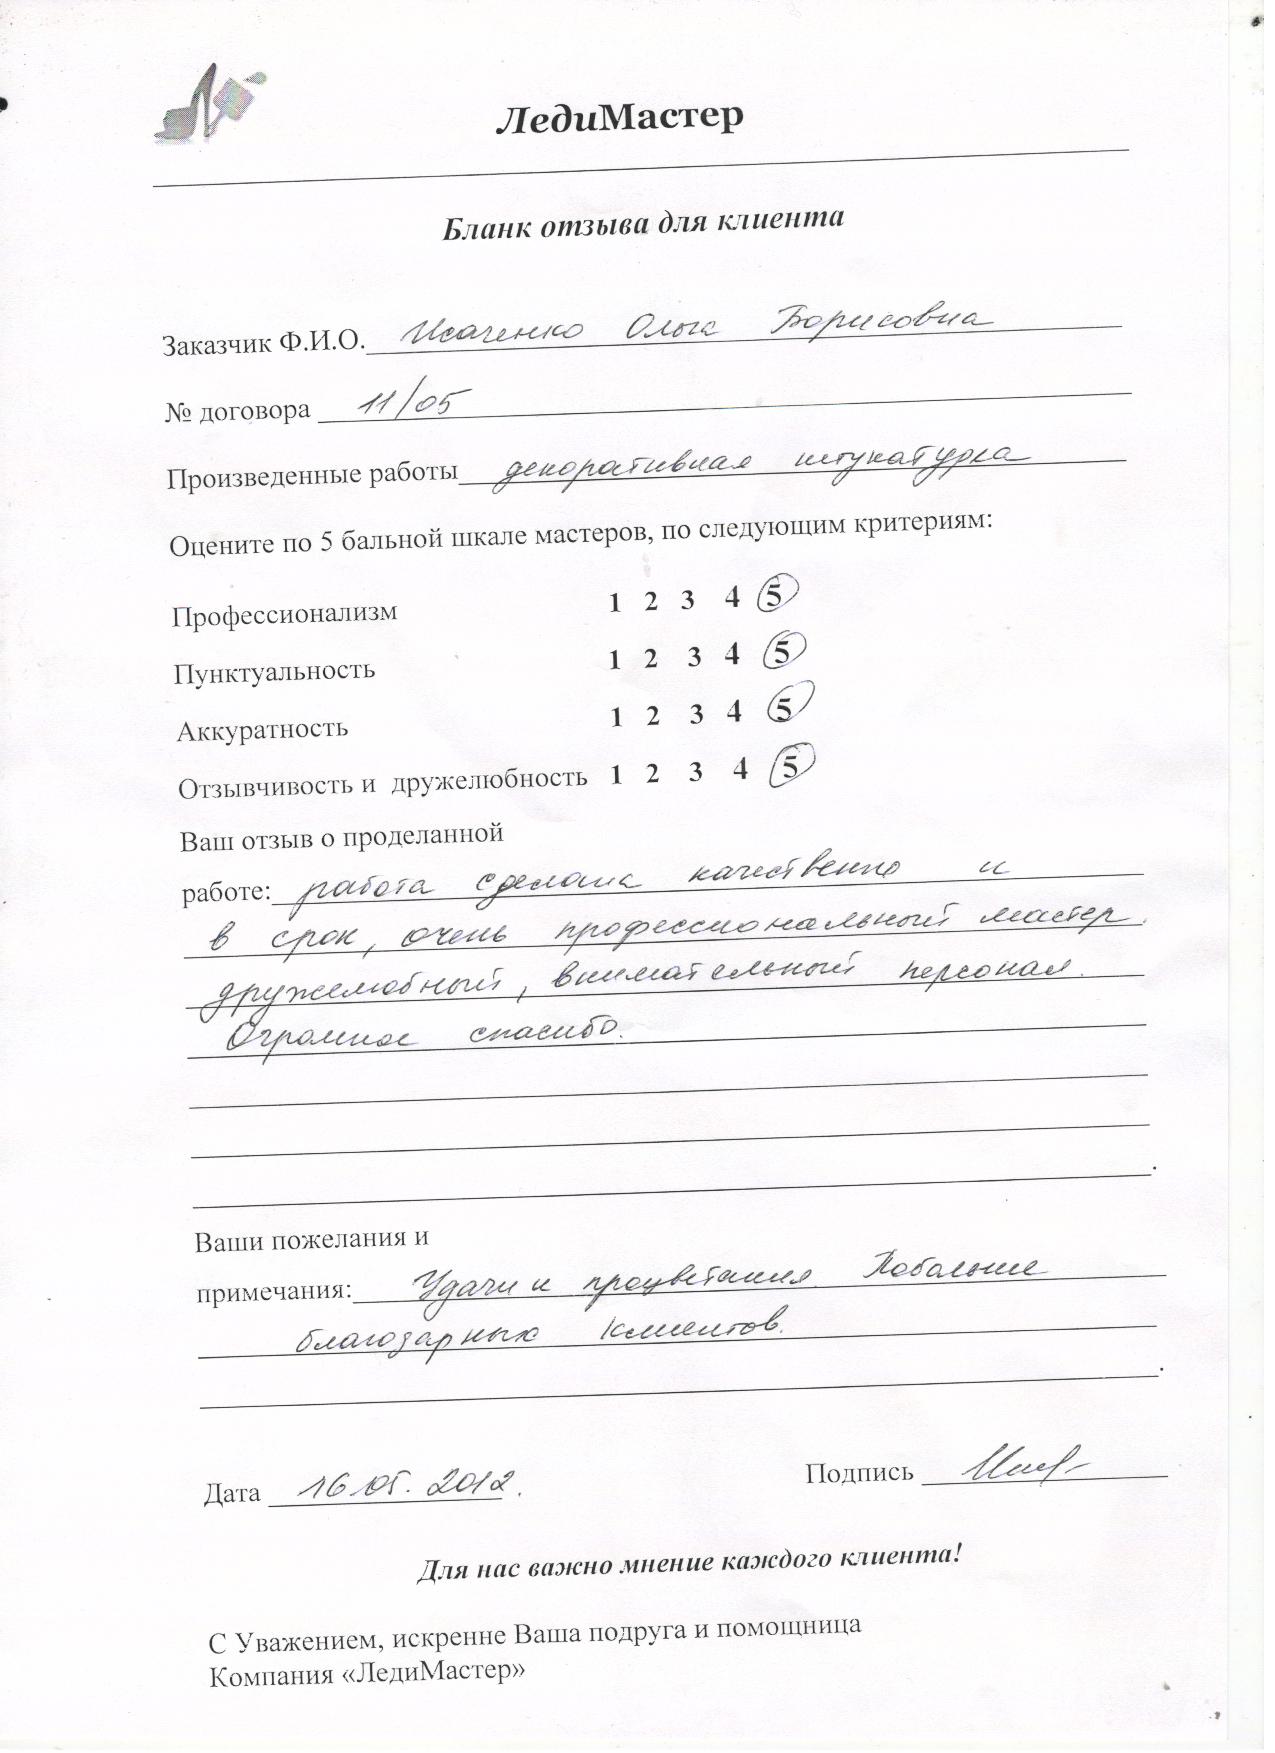 ЛедиМастер
Бланк отзыва для клиента
Заказчик Ф.И.О. Исаченко Ольга Борисовна
№ договора 11/05
Произведенные работы декоративная штукатурка
Оцените по 5 бальной шкале мастеров, по следующим критериям:
Профессионализм 1 2 3 4 5
Пунктуальность 1 2 3 4 5
Аккуратность 1 2 3 4 5
Отзывчивость и дружелюбность 1 2 3 4 5
Ваш отзыв о проделанной
работе: работа сделана качественно и
в срок, очень профессиональный мастер.
дружелюбный, внимательный персонал.
Огромное спасибо.
Ваши пожелания и
примечания: Удачи и процветания Побольше
благодарных клиентов.
Дата 16.05.2012.
Подпись
Для нас важно мнение каждого клиента!
С Уважением, искренне Ваша подруга и помощница
Компания «ЛедиМастер»